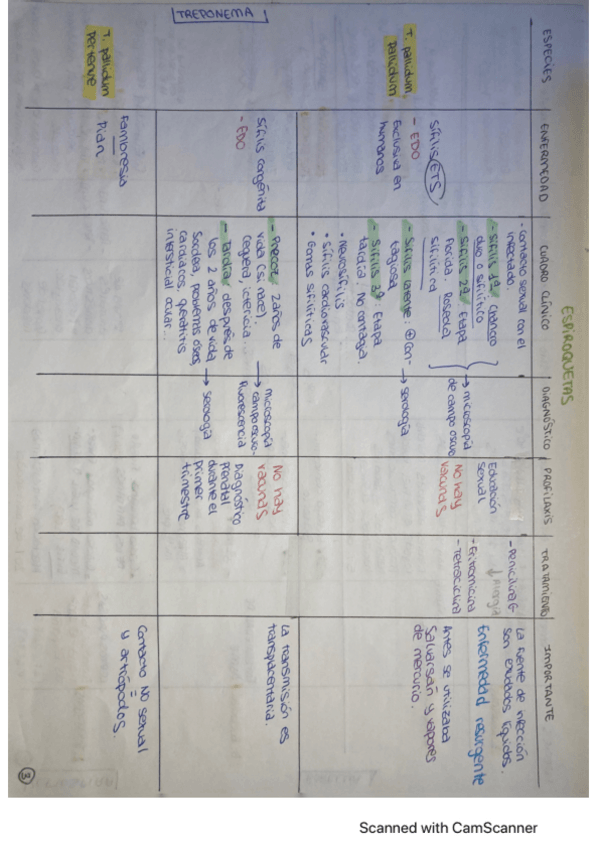 ESPIROQUETAS
TREPONEMA
ESPECIES
ENFERMEDAD
CUADRO CLÍNICO
DIAGNÓSTICO
PROFILAXIS
TRATAMIENTO
IMPORTANTE
T. pallidum
pallidum
Sífilis (ETS)
- EDO
Exclusiva en
humanos
- contacto sexual con el
infectado.
- Sífilis 1ª: Chancro
duro o sifilítico
- Sífilis 2ª: Etapa
florida. Roseola
sifilítica
- Sífilis latente: ⊕ con-
tagiosa
- Sífilis 3ª: Etapa
tardía. No contagia.
• Neurosífilis
• Sífilis cardiovascular
• Gomas sifilíticas
→ microscopía
de campo oscuro
→ serología
Educación
sexual
No hay
vacunas
- Penicilina G
↓ Alergia
- Eritromicina
- Tetraciclina
La fuente de infección
son exudados líquidos.
Enfermedad resurgente
Antes se utilizaba
Salvarsán y vapores
de mercurio.
Sífilis congénita
- EDO
- Precoz: 2 años de
vida (si nace).
Ceguera, ictericia...
- Tardía: después de
los 2 años de vida
Sordera, problemas óseos,
cardiacos, queratitis
intersticial ocular...
microscopía
→ campo oscuro-
fluorescencia
→ serología
No hay
vacunas
Diagnóstico
prenatal
durante el
primer
trimestre
La transmisión es
transplacentaria.
T. pallidum
pertenue
Frambesia
Pian
Contacto NO sexual
y artrópodos.
3
Scanned with CamScanner